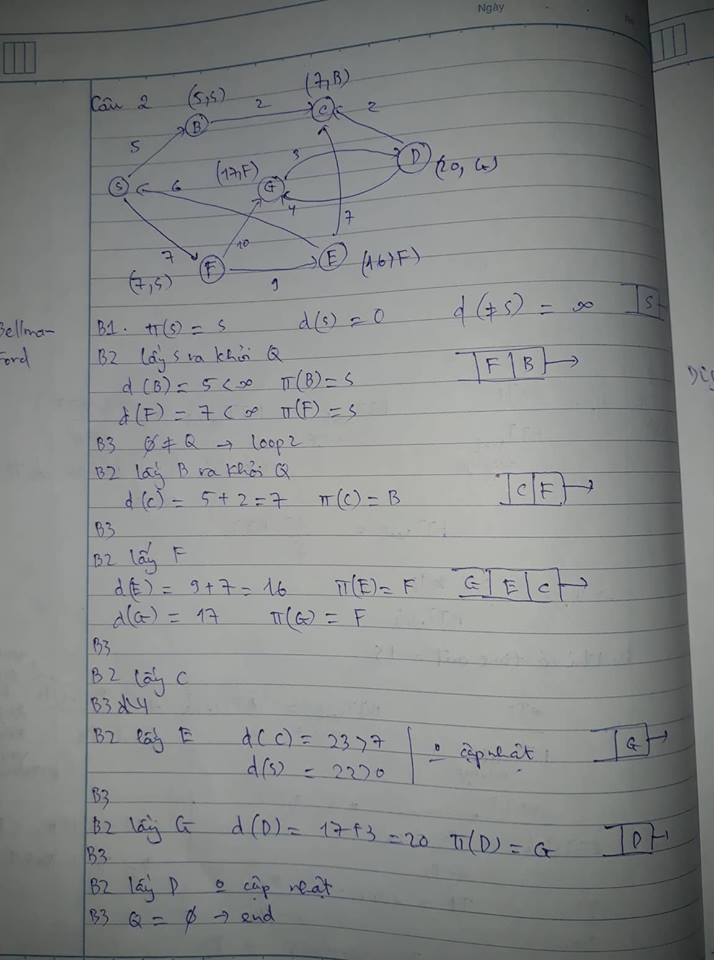 Ngày
Câu 2
(5,S)
(7,B)
B
2
C
2
5
D
(20, G)
(17,F)
G
3
S
6
4
7
10
E
(16,F)
7
F
(7,S)
9
Bellman-
Ford
B1. π(S) = S d(S) = 0 d(≠S) = ∞ S
B2 lấy S ra khỏi Q
F B
d(B) = 5 < ∞ π(B) = S
d(F) = 7 < ∞ π(F) = S
B3 ∅ ≠ Q → loop 2
B2 lấy B ra khỏi Q
d(C) = 5 + 2 = 7 π(C) = B
C F
B3
B2 lấy F
d(E) = 9 + 7 = 16 π(E) = F G E C
d(G) = 17 π(G) = F
B3
B2 lấy C
B3
B2 lấy E d(C) = 23 > 7 cập nhật G
d(S) = 22 > 0
B3
B2 lấy G d(D) = 17 + 3 = 20 π(D) = G D
B3
B2 lấy D cập nhật
B3 Q = ∅ → end